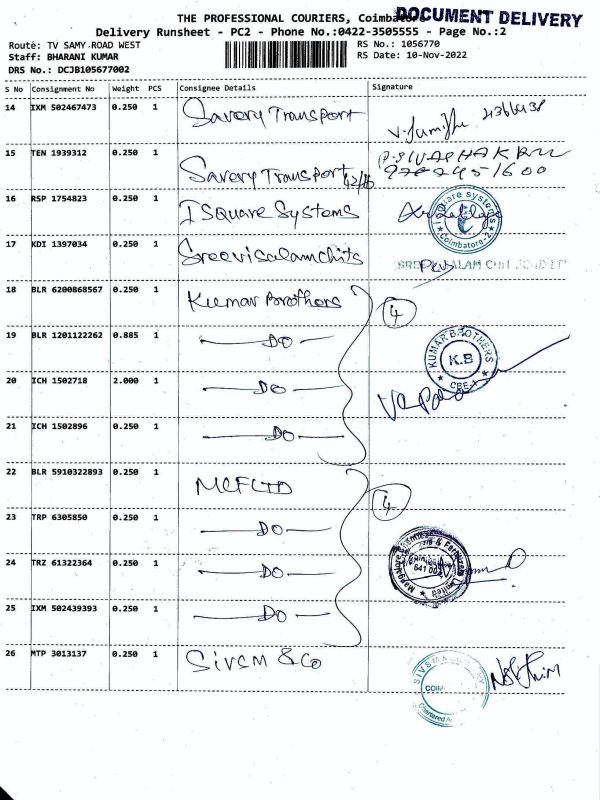 THE PROFESSIONAL COURIERS, Coimbatore
DOCUMENT DELIVERY
Delivery Runsheet - PC2 - Phone No.:0422-3505555 - Page No.:2
Route: TV SAMY ROAD WEST
RS No.: 1056770
Staff: BHARANI KUMAR
RS Date: 10-Nov-2022
DRS No.: DCJB105677002
S No Consignment No Weight PCS Consignee Details Signature
14 IXM 502467473 0.250 1 Savery Transport
15 TEN 1939312 0.250 1 Savery Transport
16 RSP 1754823 0.250 1 I Square Systems
Square Systems Coimbatore-2
17 KDI 1397034 0.250 1 Sreevisalamchits
18 BLR 6200868567 0.250 1 Kumar Brothers 4
19 BLR 1201122262 0.885 1 DO
KUMAR BROTHERS K.B CBE-1
20 ICH 1502718 2.000 1 DO
21 ICH 1502896 0.250 1 DO
22 BLR 5910322893 0.250 1 MCFLTD 4
23 TRP 6305850 0.250 1 DO
24 TRZ 61322364 0.250 1 DO
25 IXM 502439393 0.250 1 DO
26 MTP 3013137 0.250 1 SIVSM & Co